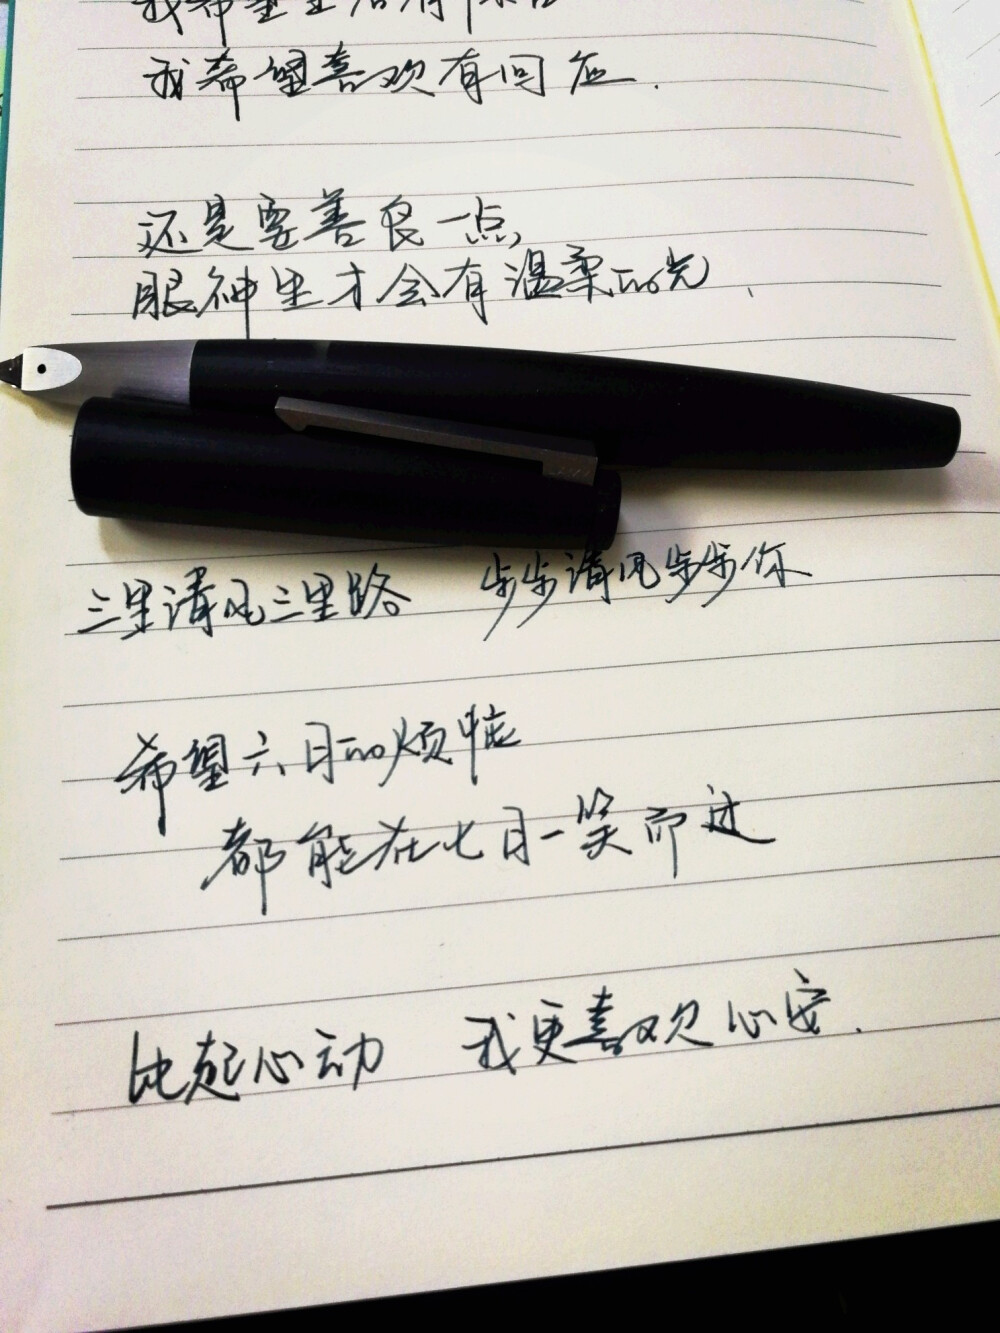 我希望
我希望喜欢有回应.
还是要善良一点,
眼神里才会有温柔的光.
三里清风三里路 步步清风步步你
希望六月的烦恼
都能在七月一笑而过
比起心动 我更喜欢心安.